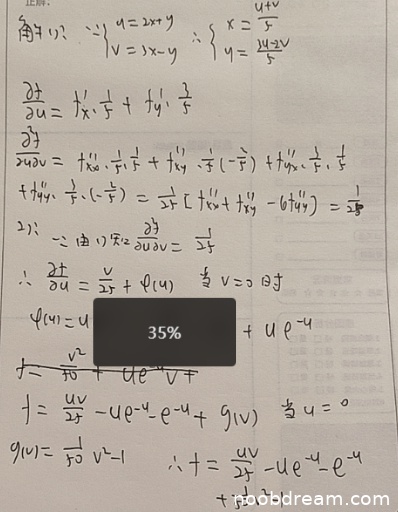 正解:
解1): ∵{u=2x+y ∴{x=(u+v)/5
v=3x-y y=(3u-2v)/5
∂f/∂u = f'x·1/5 + f'y·3/5
∂²f/∂u∂v = f''xx·1/5·1/5 + f''xy·1/5(-2/5) + f''yx·3/5·1/5
+f''yy·3/5·(-2/5) = 1/25[f''xx+f''xy-6f''yy] = 1/25
2): ∵由1)知∂²f/∂u∂v = 1/25
∴ ∂f/∂u = v/25 + φ(u) 当v=0时
φ(u)=u
35%
+ ue^-u
f = v²/50 + ue^-u v +
f = uv/25 - ue^-u - e^-u + g(v) 当u=0
g(v) = 1/50 v²-1 ∴f = uv/25 - ue^-u - e^-u
noobdream.com